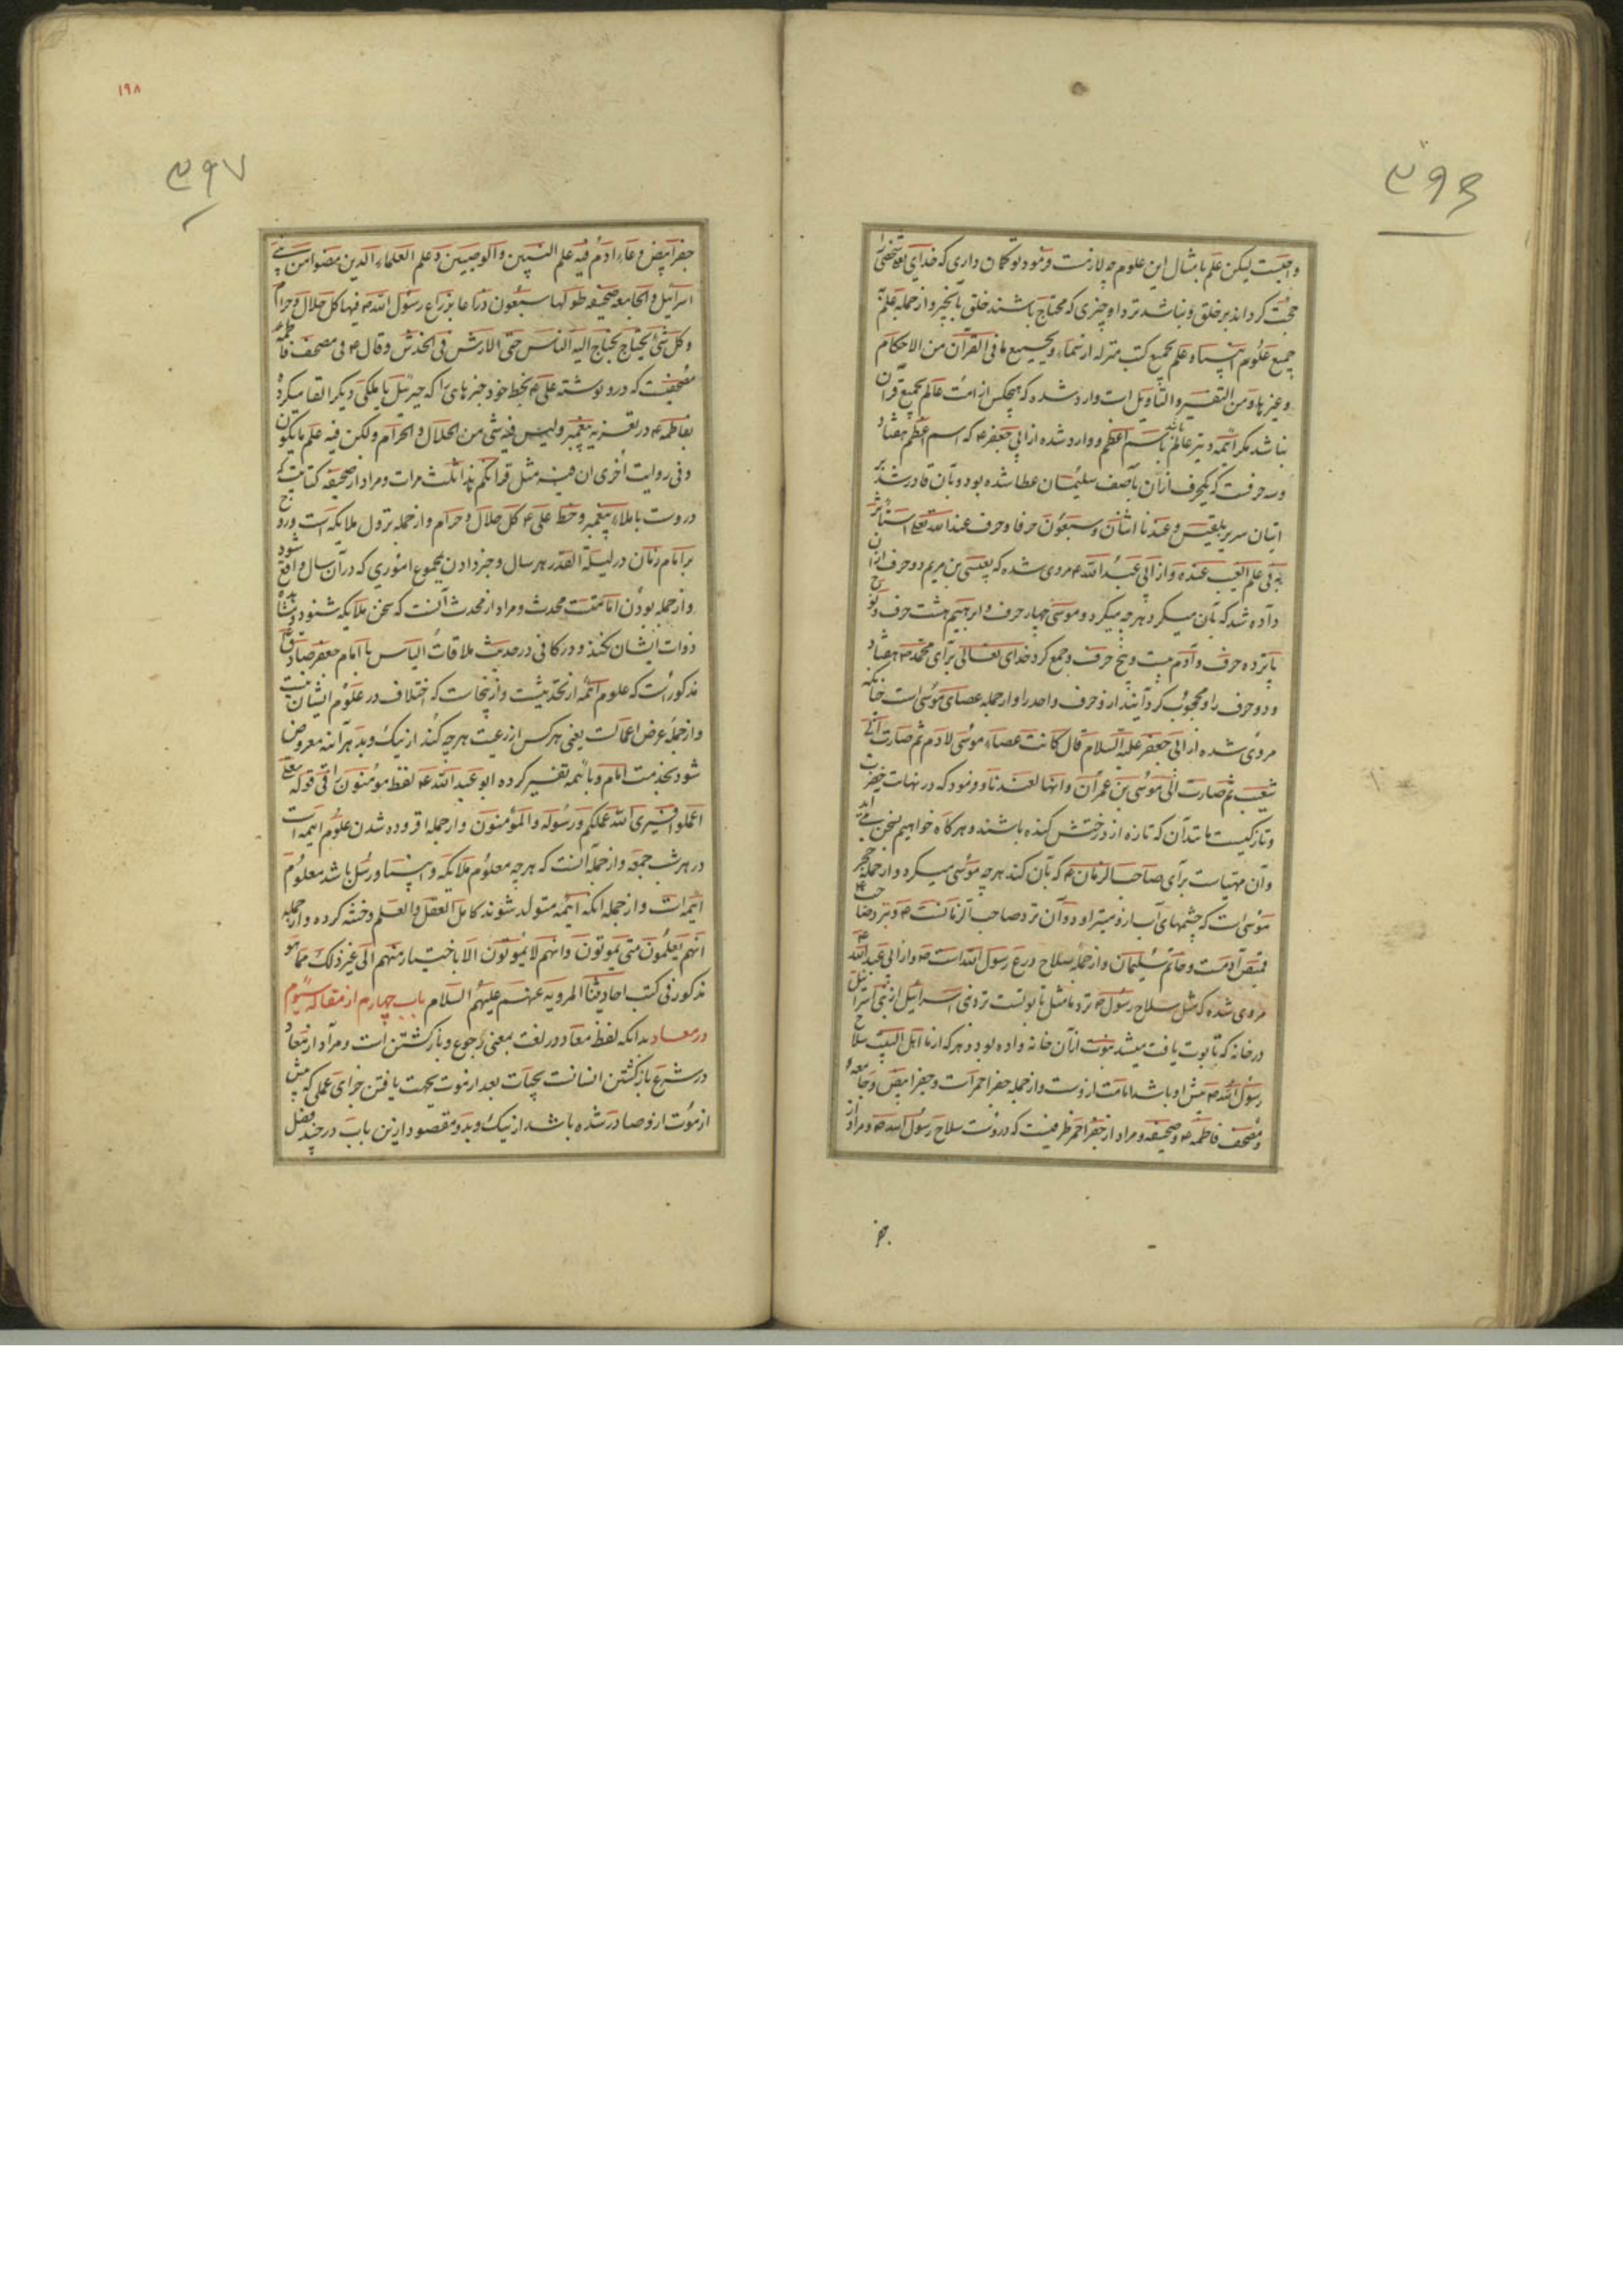 واجبست لیکن علم بامثال این علوم چه لازمست فرمود تو گمان داری که خدای تعالی شخصی را
حجت گرداند بر خلق و نباشد نزد او چیزی که محتاج باشند خلق بآنچیز و از جمله علم
جمیع علوم انبیاء و علم بجمیع کتب منزله از سماء و بجمیع ما فی القرآن من الاحکام
و غیرها و من التفسیر و التاویل است وارد شده که هیچکس از امت عالم بجمیع قرآن
نباشد مگر ائمه و نیز عالم باشند باسم اعظم و وارد شده از ابی جعفر ع که اسم اعظم هفتاد
و سه حرفست که یکحرف از آن بآصف سلیمان عطا شده بود و بآن قادر شد بر
اتیان سریر بلقیس و عندنا اثنان و سبعون حرفا و حرف عند الله تعالی استأثر
به فی علم الغیب عنده و از ابی عبد الله ع مروی شده که بعیسی بن مریم دو حرف از آن
داده شد که بآن میکرد هر چه میکرد و موسی چهار حرف و ابرهیم هشت حرف و نوح
پانزده حرف و آدم بیست و پنج حرف و جمع کرد خدای تعالی برای محمد ص هفتاد
و دو حرف را و محجوب گردانید از او حرف واحد را و از جمله عصای موسی است چنانکه
مروی شده از ابی جعفر علیه السلام قال کانت عصاء موسی لادم ثم صارت الی
شعیب ثم صارت الی موسی بن عمران و انها لعندنا و فرمود که در نهایت خضرت
و تازگیست مانند آن که تازه از درختش کنده باشند و هر گاه خواهیم بسخن می آید
و آن مهیاست برای صاحب الزمان ع که بآن کند هر چه موسی میکرد و از جمله حجر
موسی است که چشمهای آب از و میتراود و آن نزد صاحب الزمانست ع و نیز نزد صاحب ع
قمیص آدمست و خاتم سلیمان و از جمله سلاح درع رسول الله است ص و از ابی عبد الله ع
مروی شده که مثل سلاح رسول ص نزد ما مثل تابوتست نزد بنی اسرائیل از بنی اسرائیل
در خانه که تابوت یافت میشد نبوت بآن خانه داده بود و هر که از ما اهل البیت سلاح
رسول الله ص پیش او باشد امامت از وست و از جمله جفر احمر است و جفر ابیض و جامعه و
و مصحف فاطمه ع و صحیفه و مراد از جفر احمر ظرفیست که در وست سلاح رسول الله ص و مراد از
جفر
۱۹۸
جفر ابیض وعاء ادم فیه علم النبیین و الوصیین و علم العلماء الذین مضوا من بنی
اسرائیل و الجامعه صحیفه طولها سبعون ذراعا بذراع رسول الله ص فیها کل حلال و حرام
و کل شیء یحتاج یحتاج الیه الناس حتی الارش فی الخدش و قال ع فی مصحف فاطمه ع
مصحفیست که درو نوشته علی ع بخط خود خبرهای را که جبرئیل یا ملکی دیگر القا میکرده
بفاطمه ع در تعزیه پیغمبر و لیس فیه شیء من الحلال و الحرام ولکن فیه علم ما یکون
و فی روایت اخری ان فیه مثل قرانکم هذا ثلث مرات و مراد از صحیفه کتابیست که
دروست باملاء پیغمبر و خط علی ع کل حلال و حرام و از جمله نزول ملایکه است و روح
بر امام زمان در لیلة القدر هر سال و خبر دادن بمجموع اموری که در آن سال واقع شود
و از جمله بودن امامست محدث و مراد از محدث آنست که سخن ملایکه شنود و مشاهده
ذوات ایشان نکند و در کافی در حدیث ملاقات الیاس با امام جعفر صادق ع
مذکور است که علوم ائمه از تحدیثست و از ینجاست که اختلاف در علوم ایشان نیست
و از جمله عرض اعمالست یعنی هر کس از رعیت هر چه کند از نیک و بد هر آینه معروض
شود بخدمت امام و بائمه تفسیر کرده ابو عبد الله ع لفظ مؤمنون را فی قوله تعالی
اعملوا فسیری الله عملکم و رسوله و المؤمنون و از جمله افزوده شدن علوم ائمه است
در هر شب جمعه و از جمله آنست که هر چه معلوم ملایکه و انبیاء و رسل باشد معلوم
ائمه است و از جمله انکه ائمه متولد شوند کامل العقل و العلم و ختنه کرده و از جمله
انهم یعلمون متی یموتون و انهم لا یموتون الا باختیار منهم الی غیر ذلک مما هو
مذکور فی کتب احادیثنا المرویه عنهم علیهم السلام باب چهارم از مقاله سیوم
در معاد بدانکه لفظ معاد در لغت بمعنی رجوع و بازگشتن است و مراد از معاد
در شرع بازگشتن انسانست بحیات بعد از موت بجهت یافتن جزای عملی که پیش
از موت از و صادر شده باشد از نیک و بد و مقصود ازین باب در چند فصل